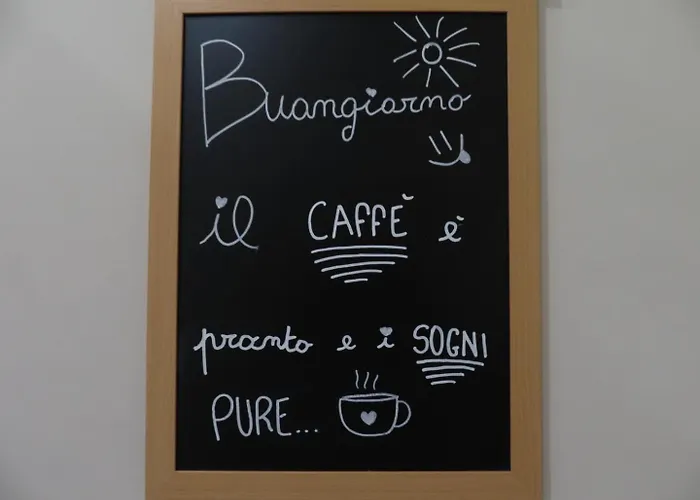 Buongiorno
il CAFFÈ è
pronto e i SOGNI
PURE...